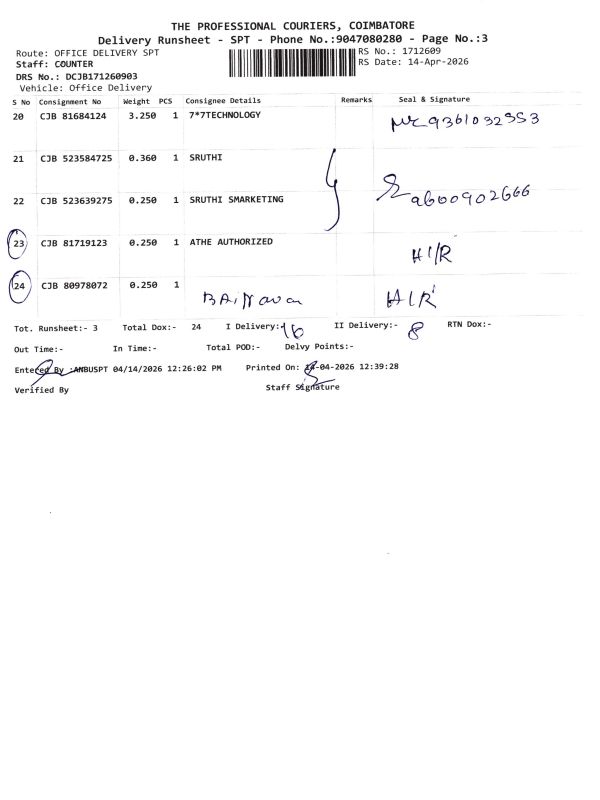 THE PROFESSIONAL COURIERS, COIMBATORE
Delivery Runsheet - SPT - Phone No.:9047080280 - Page No.:3
Route: OFFICE DELIVERY SPT
Staff: COUNTER
DRS No.: DCJB171260903
Vehicle: Office Delivery
RS No.: 1712609
RS Date: 14-Apr-2026
S No Consignment No Weight PCS Consignee Details Remarks Seal & Signature
20 CJB 81684124 3.250 1 7*7TECHNOLOGY 9361032353
21 CJB 523584725 0.360 1 SRUTHI
22 CJB 523639275 0.250 1 SRUTHI SMARKETING 9600902666
23 CJB 81719123 0.250 1 ATHE AUTHORIZED H1/R
24 CJB 80978072 0.250 1 H1R
Tot. Runsheet:- 3 Total Dox:- 24 I Delivery:- 16 II Delivery:- 8 RTN Dox:-
Out Time:- In Time:- Total POD:- Delvy Points:-
Entered By :ANBUSPT 04/14/2026 12:26:02 PM Printed On: 14-04-2026 12:39:28
Verified By Staff Signature